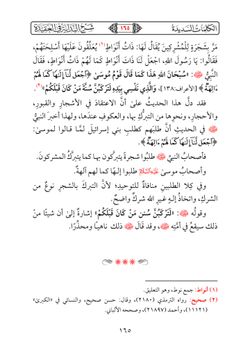 الكلمات السديدة ١٦٥ شرح البداية في العقيدة
مَرَّ بِشَجَرَةٍ لِلْمُشْرِكِينَ يُقَالُ لَهَا: ذَاتُ أَنْوَاطٍ(١) يُعَلِّقُونَ عَلَيْهَا أَسْلِحَتَهُمْ،
فَقَالُوا: يَا رَسُولَ اللهِ، اجْعَلْ لَنَا ذَاتَ أَنْوَاطٍ كَمَا لَهُمْ ذَاتُ أَنْوَاطٍ، فَقَالَ
النَّبِيُّ ﷺ: «سُبْحَانَ اللهِ هَذَا كَمَا قَالَ قَوْمُ مُوسَى ﴿اجْعَل لَّنَا إِلَٰهًا كَمَا لَهُمْ
ءَالِهَةٌ﴾ [الأعراف: ١٣٨]، وَالَّذِي نَفْسِي بِيَدِهِ لَتَرْكَبُنَّ سُنَّةَ مَنْ كَانَ قَبْلَكُمْ»(٢).
فقد دلَّ هذا الحديثُ على أنَّ الاعتقادَ في الأشجارِ والقبورِ،
والأحجارِ، ونحوِها من التبركِ بها، والعكوفِ عندَها، ولهذا أخبرَ النبيُّ
ﷺ في الحديثِ أنَّ طلبَهم كطلبِ بني إسرائيلَ لمَّا قالوا لموسىٰ:
﴿اجْعَل لَّنَا إِلَٰهًا كَمَا لَهُمْ ءَالِهَةٌ﴾.
فأصحابُ النبيِّ ﷺ طلبُوا شجرةً يتبركُون بها كما يتبركُ المشركونَ.
وأصحابُ موسىٰ عليه السلام طلبوا إلهًا كما لهم آلهةٌ.
وفي كِلا الطلبينِ منافاةٌ للتوحيدِ؛ لأنَّ التبركَ بالشجرِ نوعٌ من
الشركِ، واتخاذُ إلهٍ غيرِ اللهِ شركٌ واضحٌ.
وقولُه ﷺ: «لَتَرْكَبُنَّ سُنَنَ مَنْ كَانَ قَبْلَكُمْ» إشارةٌ إلىٰ أن شيئًا منْ
ذلكَ سيقعُ في أمَّتِه ﷺ، وقد قَالَ ﷺ ذلكَ ناهيًا ومحذِّرًا.
(١) أنواط: جمع نوط، وهو التعليق.
(٢) صحيح: رواه الترمذي (٢١٨٠)، وقال: حسن صحيح، والنسائي في «الكبرى»
(١١١٢١)، وأحمد (٢١٨٩٧)، وصححه الألباني.
١٦٥